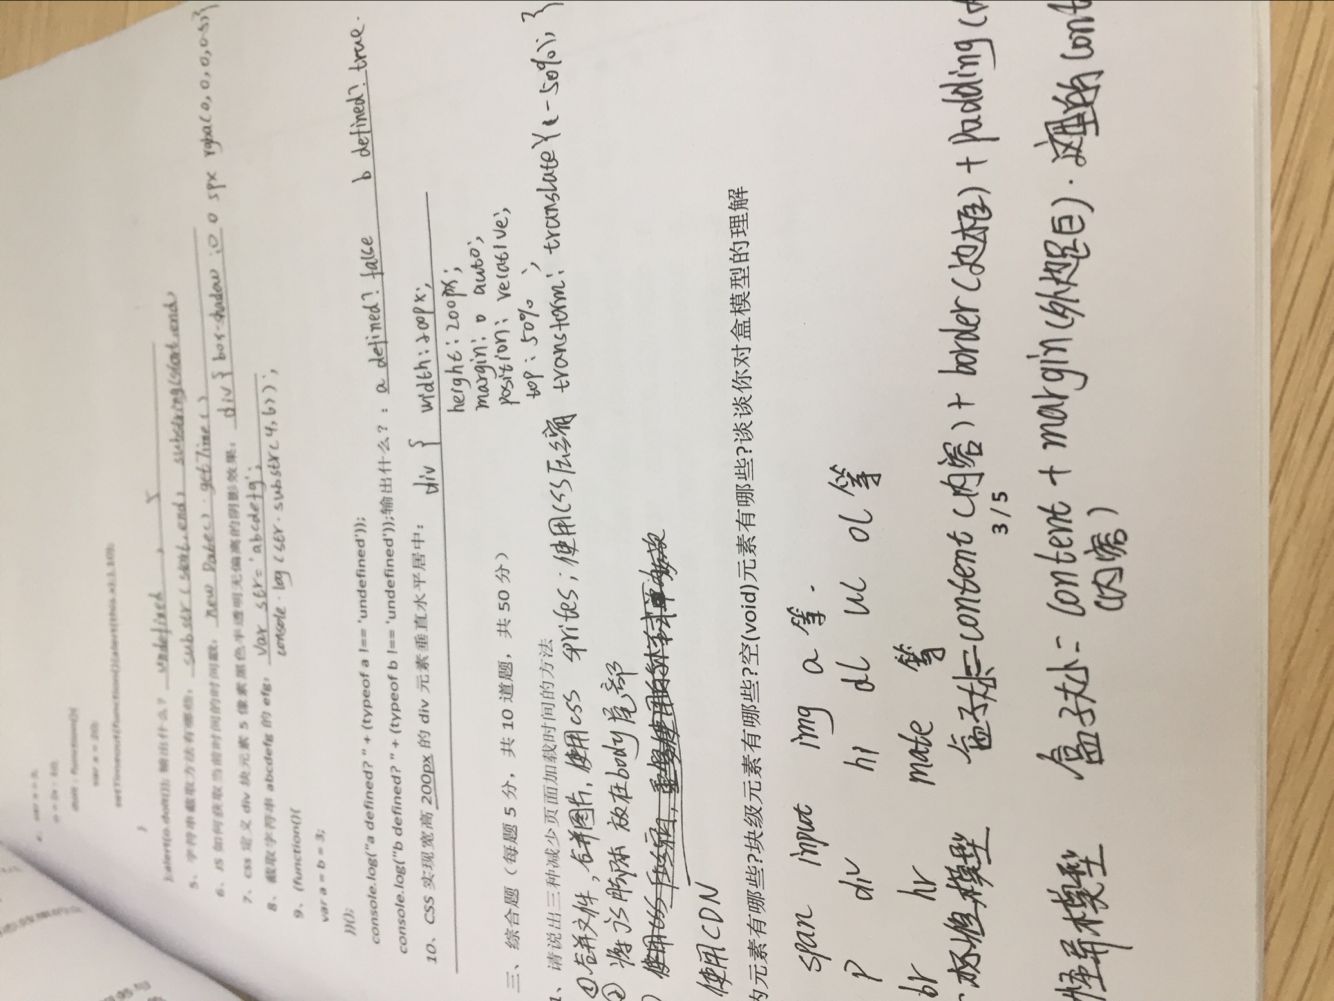 var x = 5,
o = {x : 10,
doIt : function(){
var x = 20;
setTimeout(function(){alert(this.x);},10);
}
};alert(o.doIt()); 输出什么？ undefined , 5
5、字符串截取方法有哪些： substr(start,end) substring(start,end)
6、JS 如何获取当前时间的时间戳： new Date().getTime()
7、css 定义 div 块元素 5 像素黑色半透明无偏离的阴影效果： div{ box-shadow :0 0 5px rgba(0,0,0,0.5)}
8、截取字符串 abcdefg 的 efg： var str='abcdefg';
console.log(str.substr(4,6));
9、(function(){
var a = b = 3;
})();
console.log("a defined? " + (typeof a !== 'undefined'));
console.log("b defined? " + (typeof b !== 'undefined'));输出什么？： a defined? false b defined? true.
10、CSS 实现宽高 200px 的 div 元素垂直水平居中： div { width:200px;
herght:200px;
margin: 0 auto;
position: relative;
top: 50% ;
transform: translateY(-50%); }
三、综合题（每题 5 分，共 10 道题，共 50 分）
1、请说出三种减少页面加载时间的方法
① 合并文件，合并图片，使用css sprites；使用CSS压缩
② 将js脚本 放在body尾部
使用CDN
内元素有哪些?块级元素有哪些?空(void)元素有哪些?谈谈你对盒模型的理解
span input img a 等.
p div h1 dl ul ol 等
br hr mate 等
标准模型 盒子大小=content(内容)+border(边框)+padding(
3 / 5
怪异模型 盒子大小= content + margin(外边距). 这里的cont
(内容)